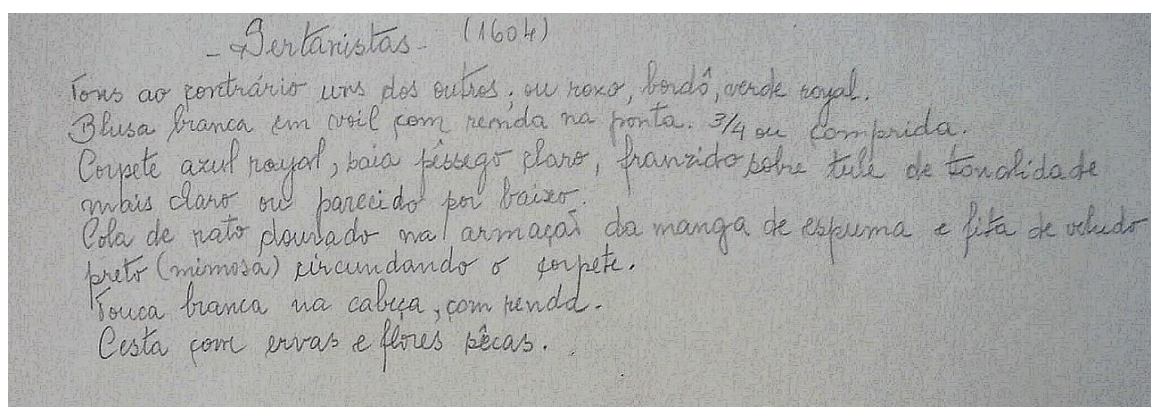 - Sertanistas - (1604)
Tons ao contrário uns dos outros, ou roxo, bordô, verde royal.
Blusa branca em voil com renda na ponta. 3/4 ou comprida.
Corpete azul royal, saia pêssego claro, franzido sobre tule de tonalidade
mais claro ou parecido por baixo.
Cola de rato dourado na armação da manga de espuma e fita de veludo
preto (mimosa) circundando o corpete.
Touca branca na cabeça, com renda.
Cesta com ervas e flores sêcas.